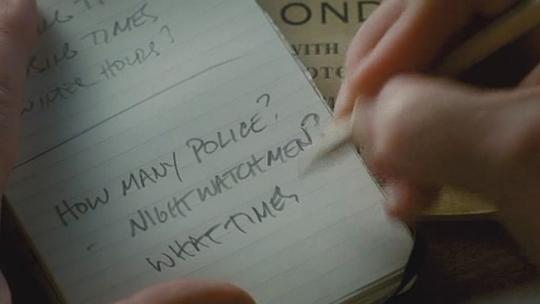 TIMES
TIMES
WINTER HOURS?
HOW MANY POLICE?
- NIGHTWATCHMEN?
WHAT TIMES
OND
WITH